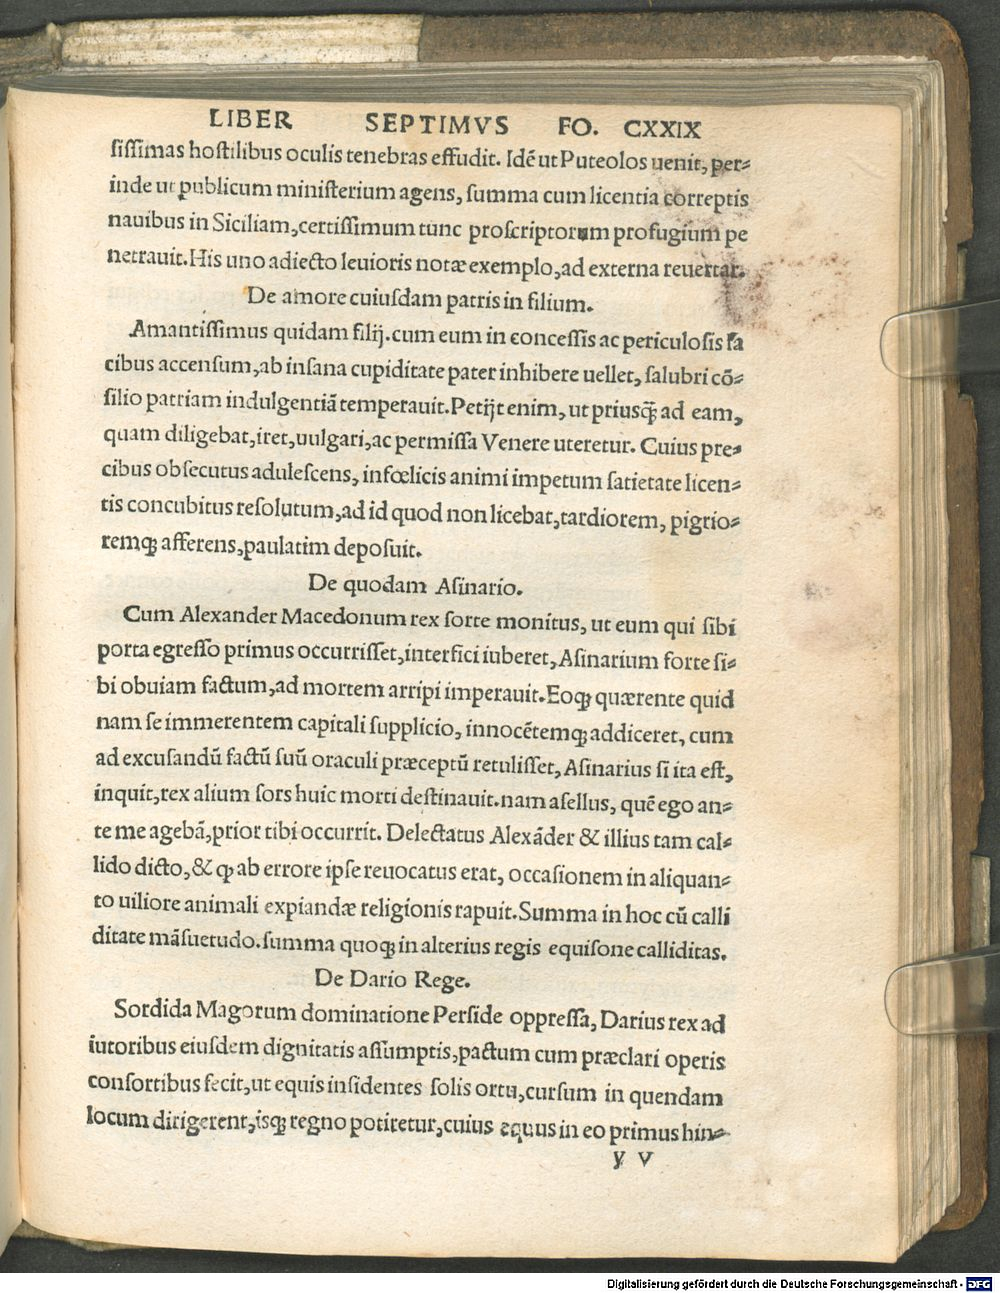 LIBER SEPTIMVS FO. CXXIX
ſiſſimas hoſtilibus oculis tenebras effudit. Idē ut Puteolos uenit, per⸗
inde ut publicum miniſterium agens, ſumma cum licentia correptis
nauibus in Siciliam, certiſſimum tunc proſcriptorum profugium pe
netrauit. His uno adiecto leuioris notæ exemplo, ad externa reuertar.
De amore cuiuſdam patris in filium.
Amantiſſimus quidam filij. cum eum in conceſſis ac periculoſis fa
cibus accenſum, ab inſana cupiditate pater inhibere uellet, ſalubri cō⸗
ſilio patriam indulgentiā temperauit. Petijt enim, ut priusq̃ ad eam,
quam diligebat, iret, uulgari, ac permiſſa Venere uteretur. Cuius pre⸗
cibus obſecutus aduleſcens, infœlicis animi impetum ſatietate licen⸗
tis concubitus reſolutum, ad id quod non licebat, tardiorem, pigrio⸗
remqꝫ afferens, paulatim depoſuit.
De quodam Aſinario.
Cum Alexander Macedonum rex ſorte monitus, ut eum qui ſibi
porta egreſſo primus occurriſſet, interfici iuberet, Aſinarium forte ſi⸗
bi obuiam factum, ad mortem arripi imperauit. Eoqꝫ quærente quid
nam ſe immerentem capitali ſupplicio, innocētemqꝫ addiceret, cum
ad excuſandū factū ſuū oraculi præceptū retuliſſet, Aſinarius ſi ita eſt,
inquit, rex alium ſors huic morti deſtinauit. nam aſellus, quē ego an⸗
te me agebā, prior tibi occurrit. Delectatus Alexāder & illius tam cal⸗
lido dicto, & ꝙ ab errore ipſe reuocatus erat, occaſionem in aliquan⸗
to uiliore animali expiandæ religionis rapuit. Summa in hoc cū calli
ditate māſuetudo. ſumma quoqꝫ in alterius regis equiſone calliditas.
De Dario Rege.
Sordida Magorum dominatione Perſide oppreſſa, Darius rex ad
iutoribus eiuſdem dignitatis aſſumptis, pactum cum præclari operis
conſortibus fecit, ut equis inſidentes ſolis ortu, curſum in quendam
locum dirigerent, isqꝫ regno potiretur, cuius equus in eo primus hin⸗
y v
Digitalisierung gefördert durch die Deutsche Forschungsgemeinschaft - DFG